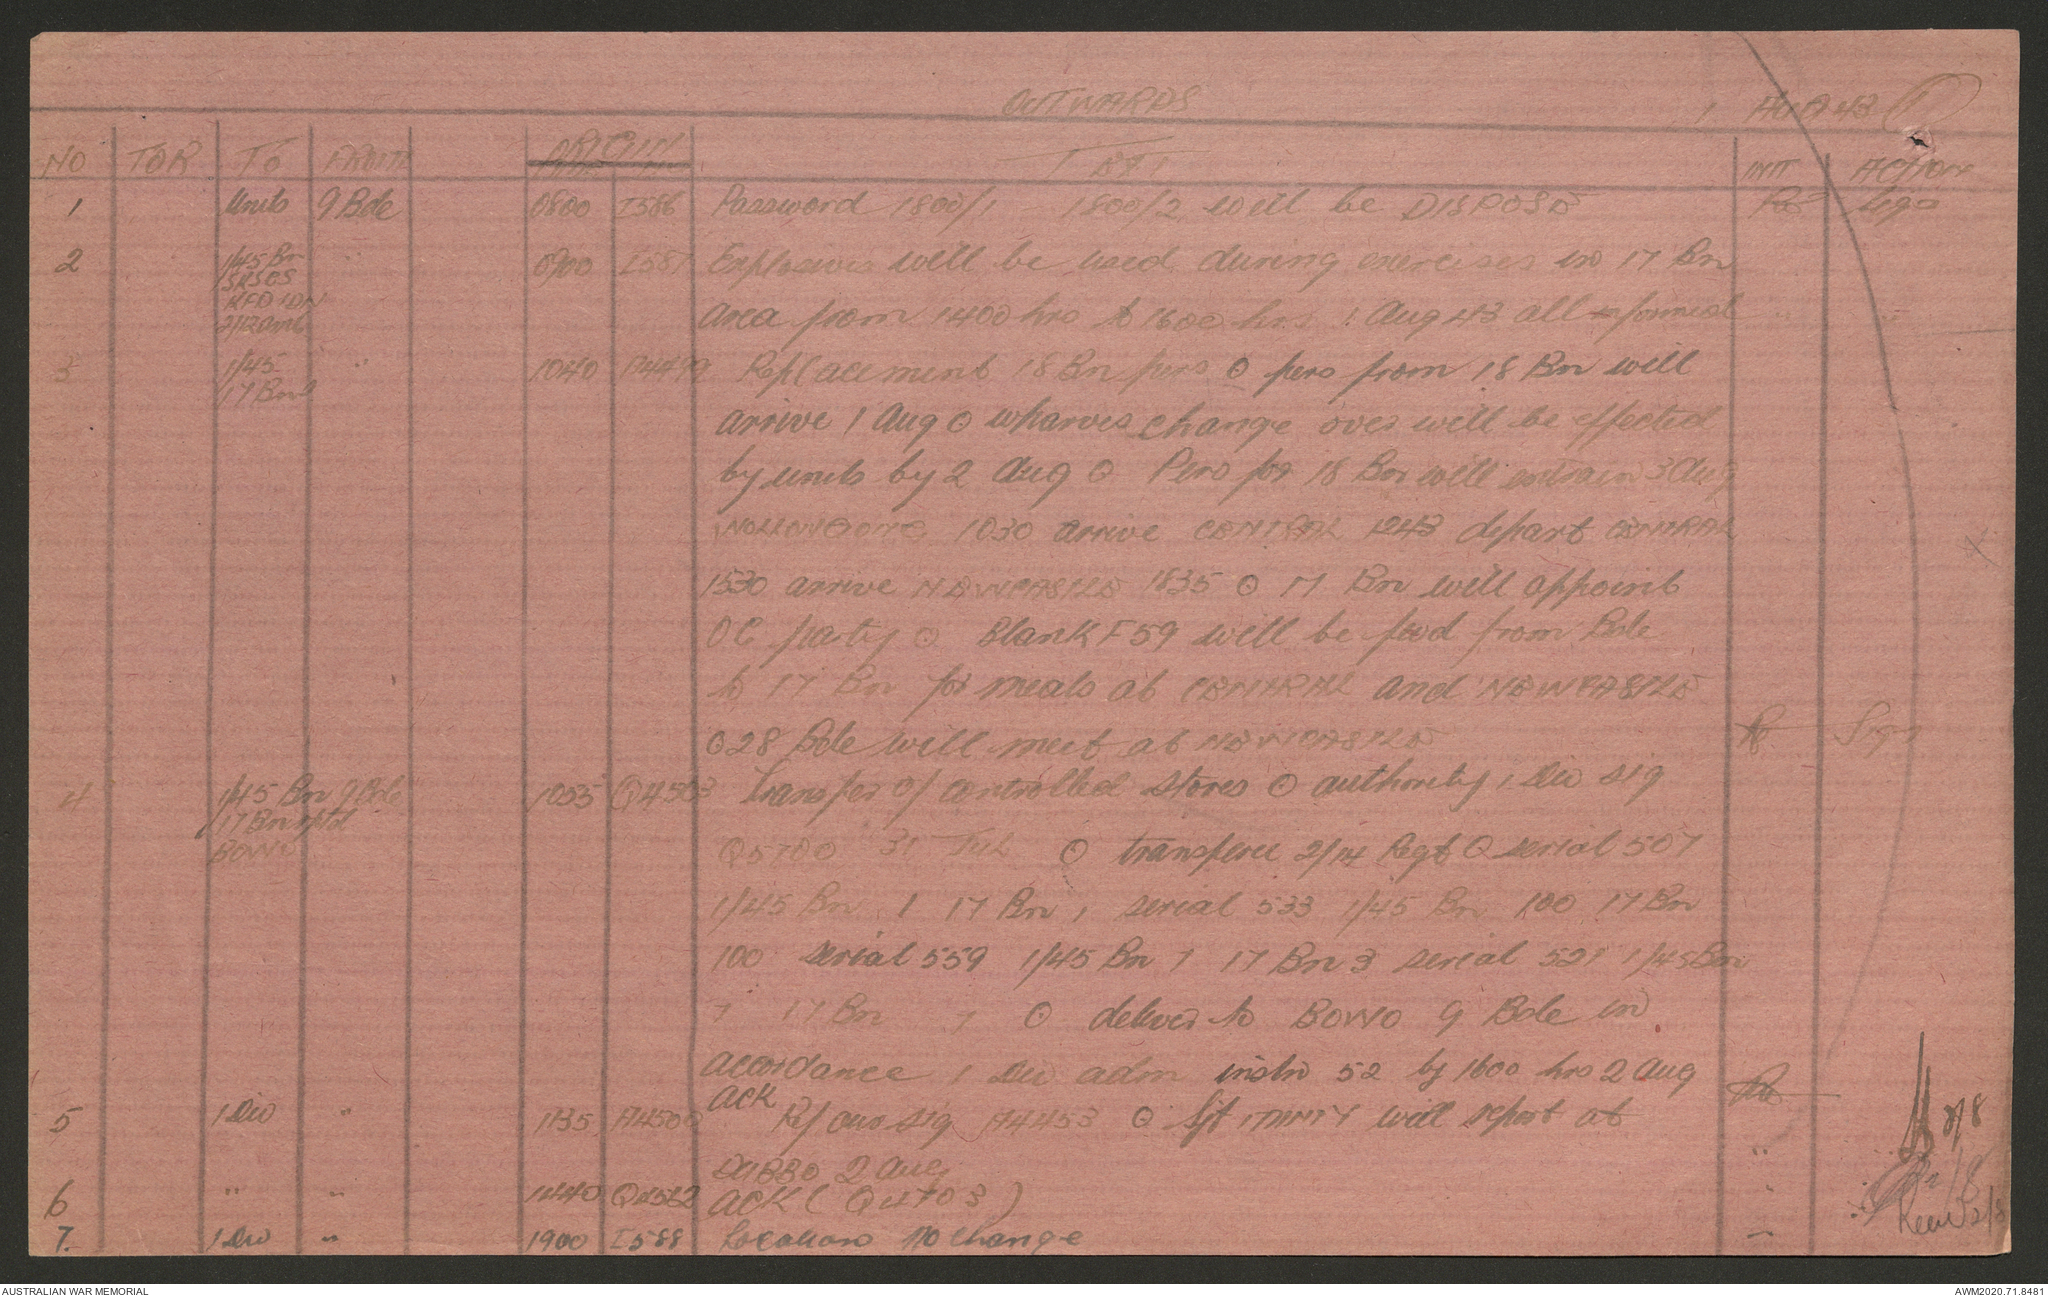 OUTWARDS
1 AUG 43 1
NO TOR TO FROM ORIGIN TEXT INIT ACTION
1 Units 9 Bde 0800 I586 Password 1800/1 1800/2 will be DISPOSE Sigs
2 1/45 Bn " 0900 I587 Explosives will be used during exercises in 17 Bn
area from 1400 hrs to 1600 hrs 1 Aug 43 all informed
2/12 Amb
3 1/45 " 1040 Replacement 18 Bn pers ⊙ pers from 18 Bn will
17 Bn
arrive 1 Aug ⊙ wharves change over will be effected
by units by 2 Aug ⊙ Pers for 18 Bn will entrain 3 Aug
WOLLONGONG 1030 arrive CENTRAL 1243 depart CENTRAL
1530 arrive NEWCASTLE 1835 ⊙ 17 Bn will appoint
OC party ⊙ Blank F59 will be fwd from Bde
to 17 Bn for meals at CENTRAL and NEWCASTLE
⊙ 28 Bde will meet at NEWCASTLE Sigs
4 1/45 Bn 9 Bde 1055 Q4503 Transfer of controlled stores ⊙ authority 1 Div sig
17 Bn rptd
BOWO
Q5700 31 JUL ⊙ transferee 2/14 Regt ⊙ serial 507
1/45 Bn 1 17 Bn 1 serial 533 1/45 Bn 100 17 Bn
100 serial 559 1/45 Bn 7 17 Bn 3 serial 521 1/45 Bn
7 17 Bn 7 ⊙ deliver to BOWO 9 Bde in
accordance 1 Div adm instn 52 by 1600 hrs 2 Aug
ACK
5 1 Div " 1135 A4500 Ref our sig A4453 ⊙ will report at "
DUBBO 2 Aug
6 " " 1440 ACK (Q4703) "
7. 1 Div " 1900 I588 Locations no change "
2/8
AUSTRALIAN WAR MEMORIAL
AWM2020.71.8481